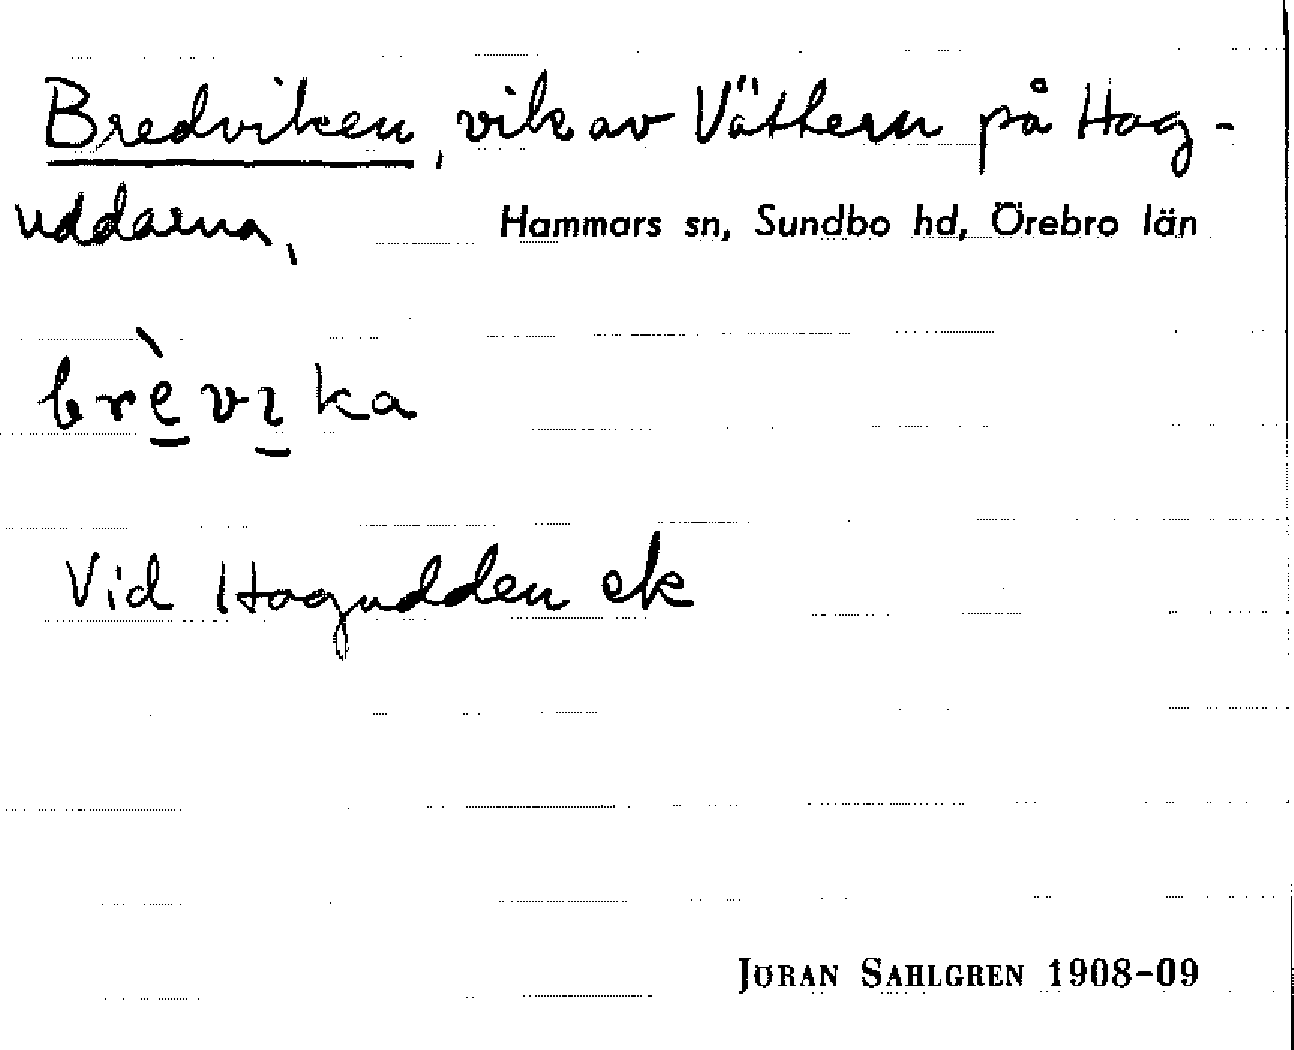 Bredviken, vik av Vättern på Hag-
uddarna,
Hammars sn, Sundbo hd, Örebro län
brè̱vı̱ka
Vid Hagudden ek
JÖRAN SAHLGREN 1908-09